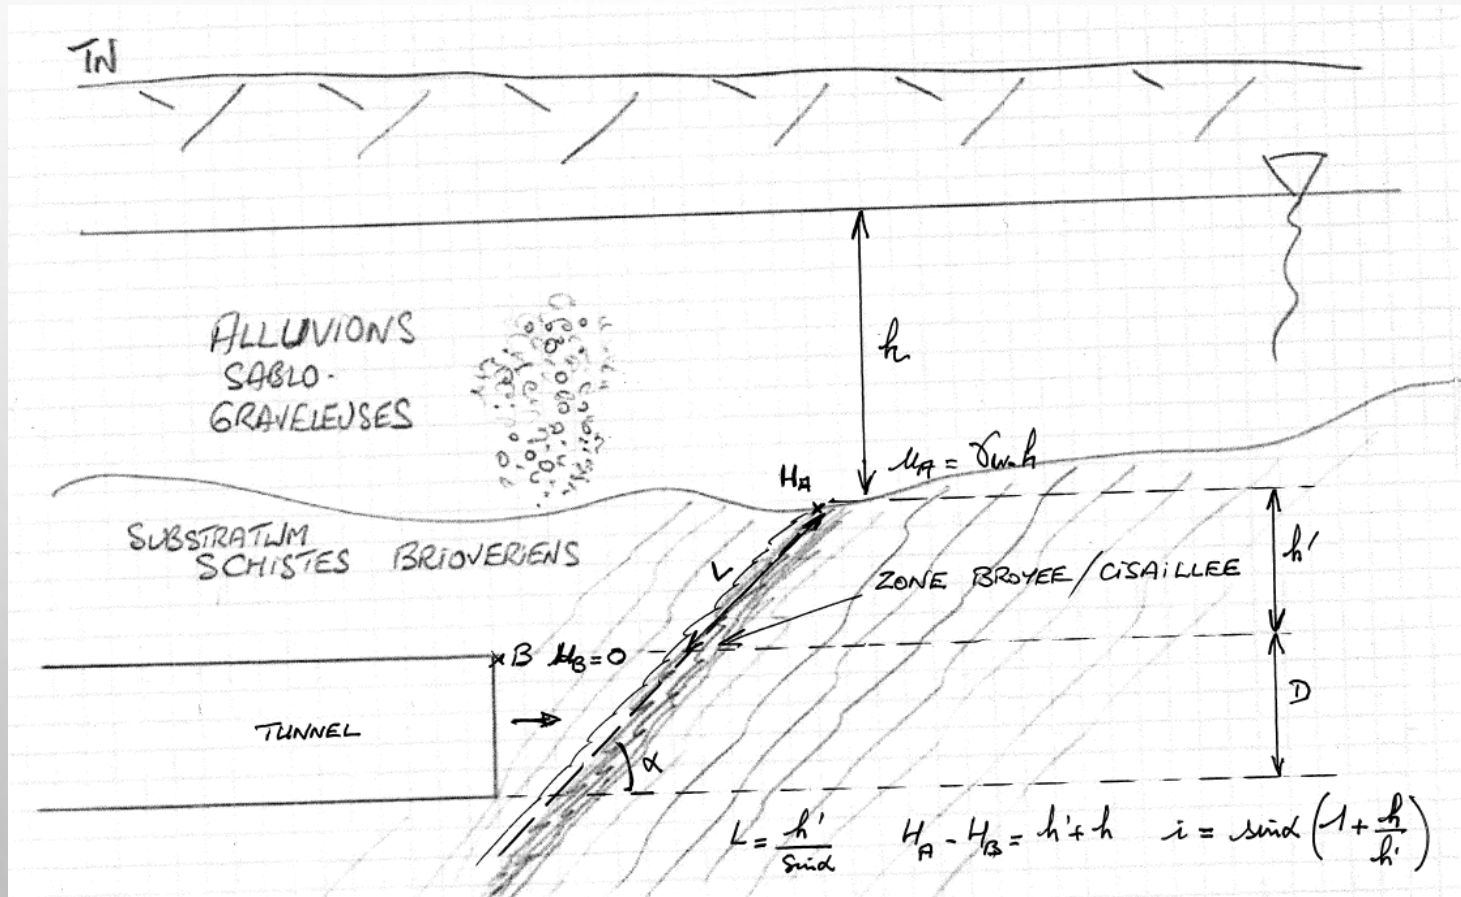 TN
h
ALLUVIONS
SABLO-
GRAVELEUSES
H_A
u_A = γw.h
SUBSTRATUM
SCHISTES BRIOVERIENS
L
ZONE BROYEE/CISAILLEE
h'
B u_B=0
D
TUNNEL
α
L = h'/sinα H_A - H_B = h'+h i = sinα (1+h/h')